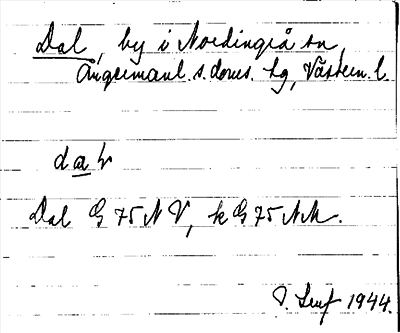 Dal, by i Nordingrå sn,
Ångermanl. s. doms. tg, Västern. l.
dal
Dal G 75 N V, k G 75 N M.
1944.